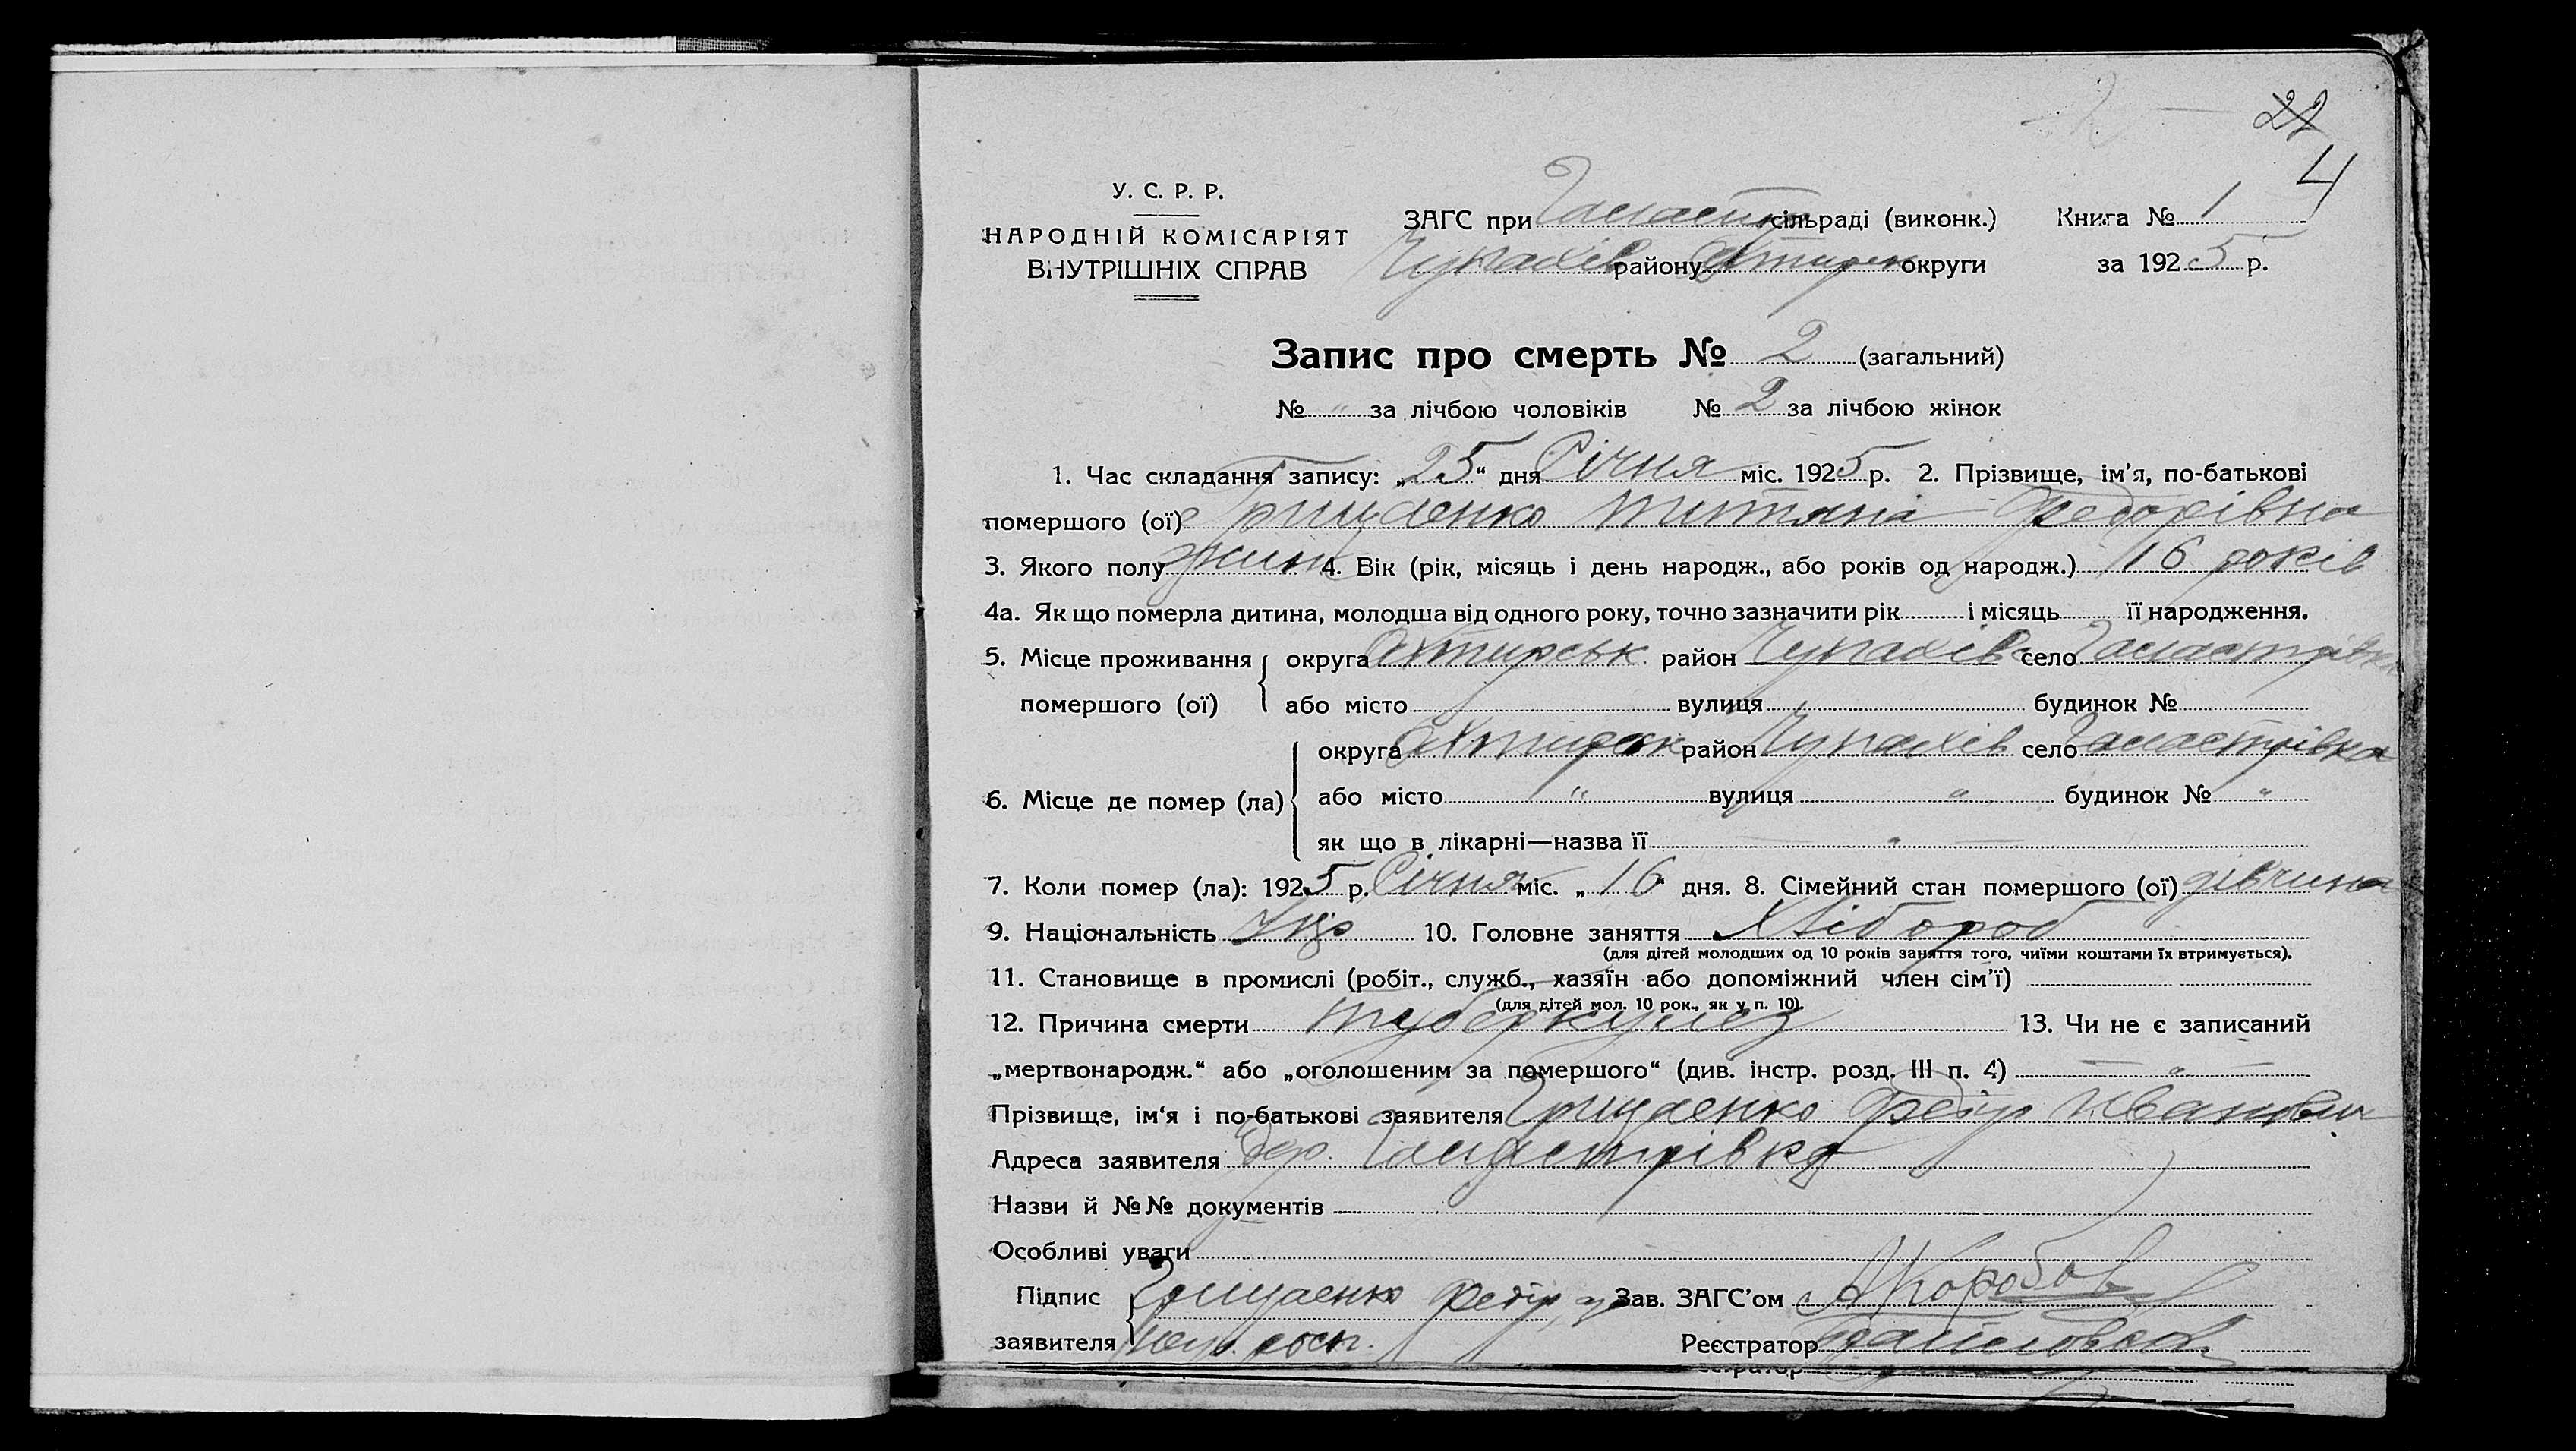 22
4
У. С. Р. Р.
НАРОДНІЙ КОМІСАРІЯТ
ВНУТРІШНІХ СПРАВ
ЗАГС при сільраді (виконк.) Книга № 1
Чупахів району Охтирськ округи за 1925 р.
Запис про смерть № 2 (загальний)
№ " за лічбою чоловіків № 2 за лічбою жінок
1. Час складання запису: „25“ дня Січня міс. 1925 р. 2. Прізвище, ім'я, по-батькові
помершого (ої) Грищенко Титяна Федорівна
3. Якого полу жин 4. Вік (рік, місяць і день народж., або років од народж.) 16 років
4а. Як що померла дитина, молодша від одного року, точно зазначити рік і місяць її народження.
5. Місце проживання округа Охтирськ район Чупахів село
помершого (ої) або місто вулиця будинок №
округа Охтирськ район Чупахів село
6. Місце де помер (ла) або місто " вулиця " будинок № "
як що в лікарні—назва її — " —
7. Коли помер (ла): 1925 р. Січня міс. „16“ дня. 8. Сімейний стан помершого (ої) дівчина
9. Національність Укр 10. Головне заняття Хлібороб
(для дітей молодших од 10 років заняття того, чиїми коштами їх втримується).
11. Становище в промислі (робіт., служб., хазяїн або допоміжний член сім'ї)
(для дітей мол. 10 рок., як у п. 10).
12. Причина смерти туберкульоз 13. Чи не є записаний
„мертвонародж.“ або „оголошеним за помершого“ (див. інстр. розд. III п. 4) — " —
Прізвище, ім'я і по-батькові заявителя Грищенко Федір Иванович
Адреса заявителя
Назви й №№ документів
Особливі уваги
Підпис Грищенко Федір, Зав. ЗАГС'ом АКоробов
заявителя Реєстратор